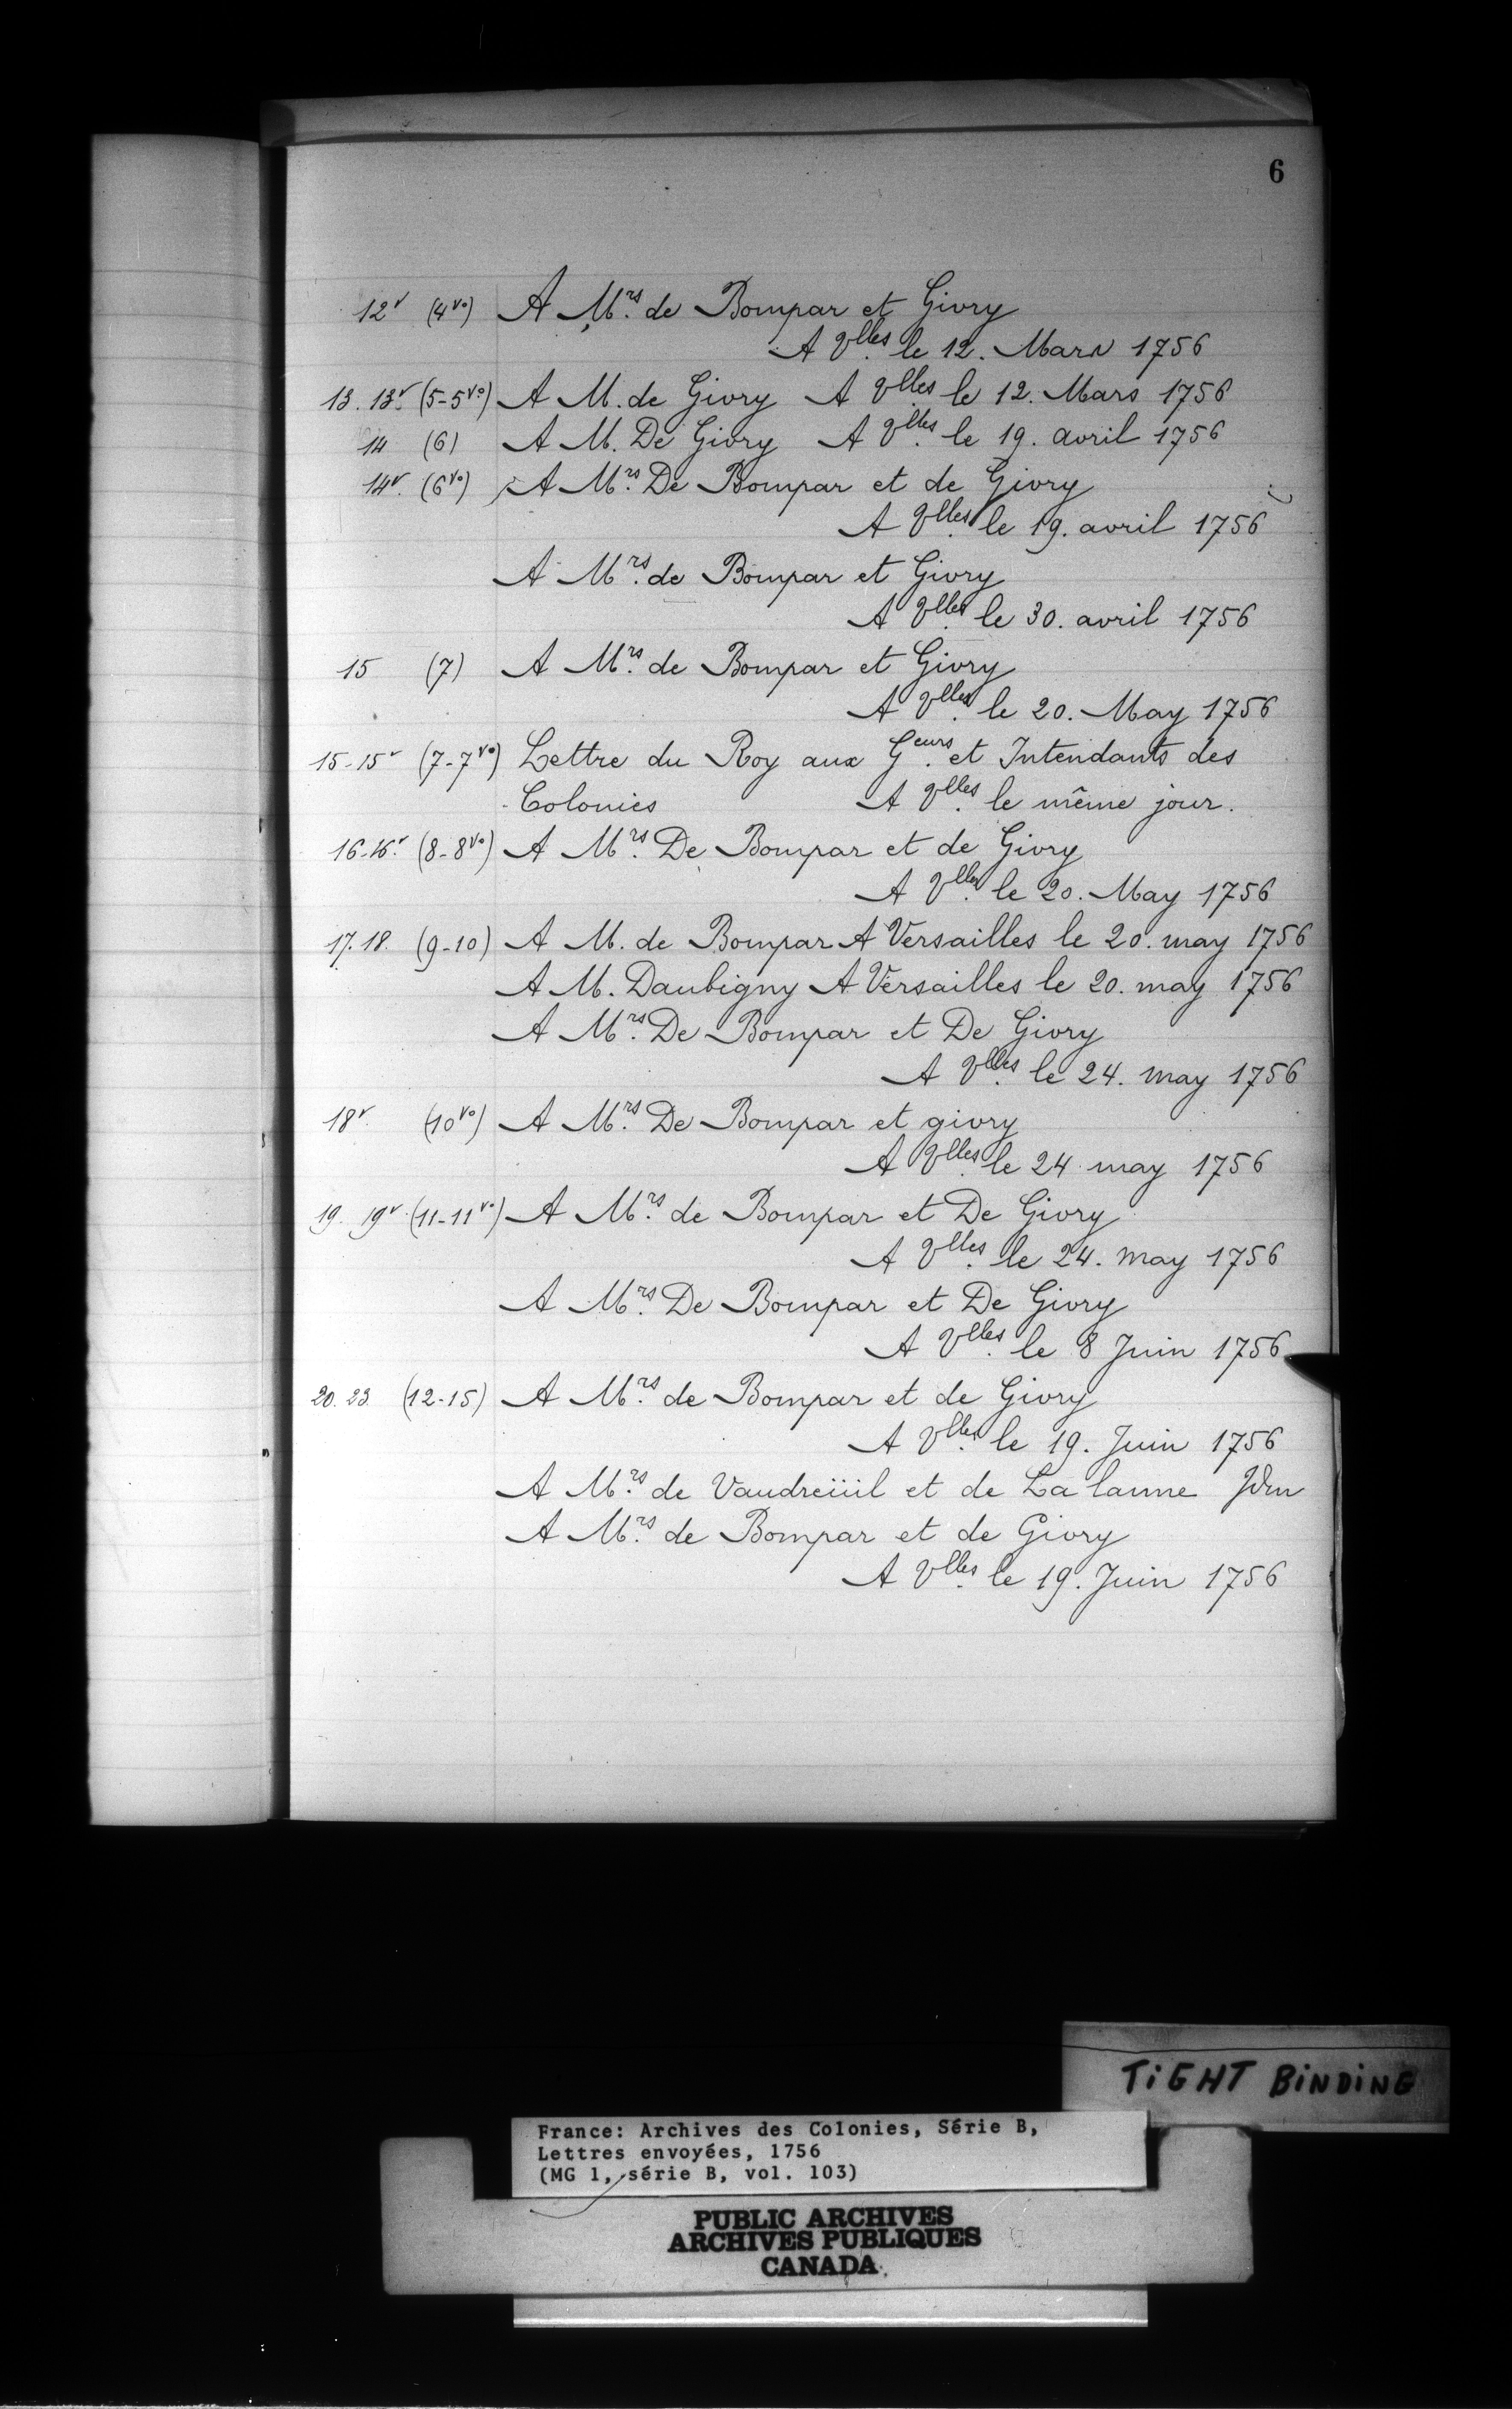 6
12v (4vo) A Mrs. de Bompar et Givry
A Vlles. le 12. Mars 1756
13. 13v. (5-5vo) A M. de Givry A Vlles. le 12. Mars 1756
14 (6) A M. De Givry A Vlles. le 19. avril 1756
14v. (6vo) A Mrs. De Bompar et de Givry
A Vlles. le 19. avril 1756
A Mrs. de Bompar et Givry
A Vlles. le 30. avril 1756
15 (7) A Mrs. de Bompar et Givry
A Vlles. le 20. May 1756
15-15v (7-7vo) Lettre du Roy aux Geurs. et Intendants des
Colonies A Vlles. le même jour.
16-16v. (8-8vo) A Mrs. De Bompar et de Givry
A Vlles. le 20. May 1756
17. 18. (9-10) A M. de Bompar A Versailles le 20. may 1756
A M. Daubigny A Versailles le 20. may 1756
A Mrs. De Bompar et De Givry
A Vlles. le 24. may 1756
18v. (10vo) A Mrs. De Bompar et givry
A Vlles. le 24 may 1756
19. 19v. (11-11vo) A Mrs. de Bompar et De Givry
A Vlles. le 24. may 1756
A Mrs. De Bompar et De Givry
A Vlles. le 8 Juin 1756
20. 23. (12-15) A Mrs. de Bompar et de Givry
A Vlles. le 19. Juin 1756
A Mrs. de Vaudreüil et de La lanne Idm
A Mrs. de Bompar et de Givry
A Vlles. le 19. Juin 1756
TIGHT BINDING
France: Archives des Colonies, Série B,
Lettres envoyées, 1756
(MG 1, série B, vol. 103)
PUBLIC ARCHIVES
ARCHIVES PUBLIQUES
CANADA